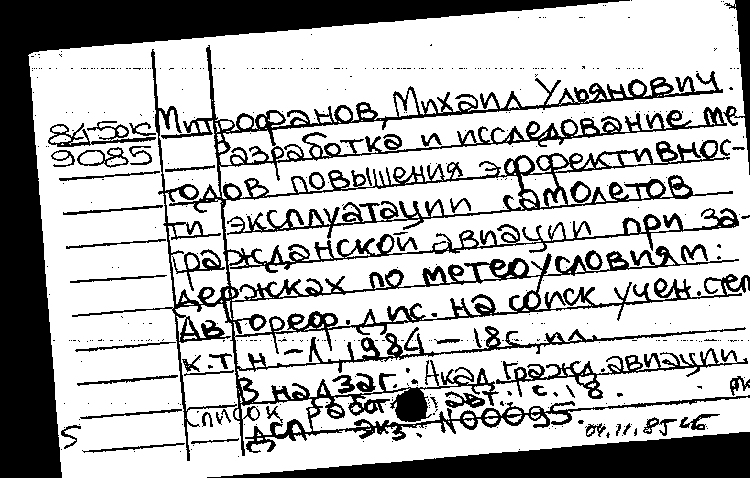 84-5ок Митрофанов, Михаил Ульянович.
9085 Разработка и исследование ме-
тодов повышения эффективнос-
ти эксплуатации самолетов
гражданской авиации при за-
держках по метеоусловиям:
Автореф. дис. на соиск учен. степ
к.т.н. - Л., 1984. - 18с, ил.
В надзаг.: Акад. гражд. авиации.
Список работ авт.: с. 18.
ДСП экз. N00095.
04.11.85